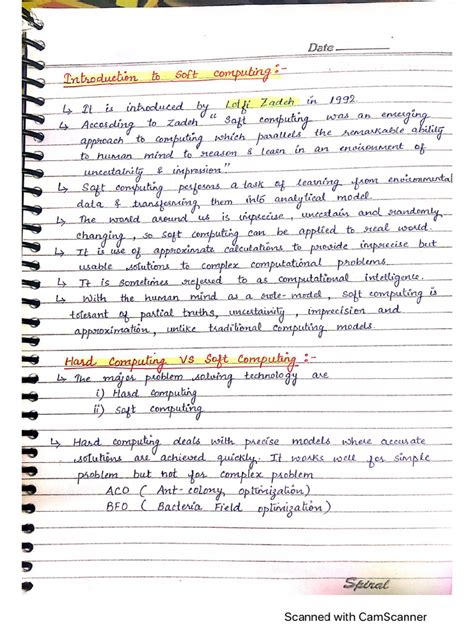 Date
Introduction to Soft Computing :-
↳ It is introduced by Lotfi Zadeh in 1992.
↳ According to Zadeh " Soft computing was an emerging
approach to computing which parallels the remarkable ability
to human mind to reason & learn in an environment of
uncertainity & impression"
↳ Soft computing performs a task of learning from envirommental
data & transferring them into analytical model.
↳ The world around us is imprecise, uncertain and randomly
changing, so soft computing can be applied to real world.
↳ It is use of approximate calculations to provide imprecise but
usable solutions to complex computational problems.
↳ It is sometimes referred to as computational intelligence.
↳ With the human mind as a role-model, soft computing is
tolerant of partial truths, uncertainity, imprecision and
approximation, unlike traditional computing models.
Hard Computing VS Soft Computing :-
↳ The major problem solving technology are
i) Hard computing
ii) Soft computing
↳ Hard computing deals with precise models where accurate
solutions are achieved quickly. It works well for simple
problem but not for complex problem
ACO ( Ant-colony, optimization)
BFO ( Bacteria Field optimization)
Spiral
Scanned with CamScanner